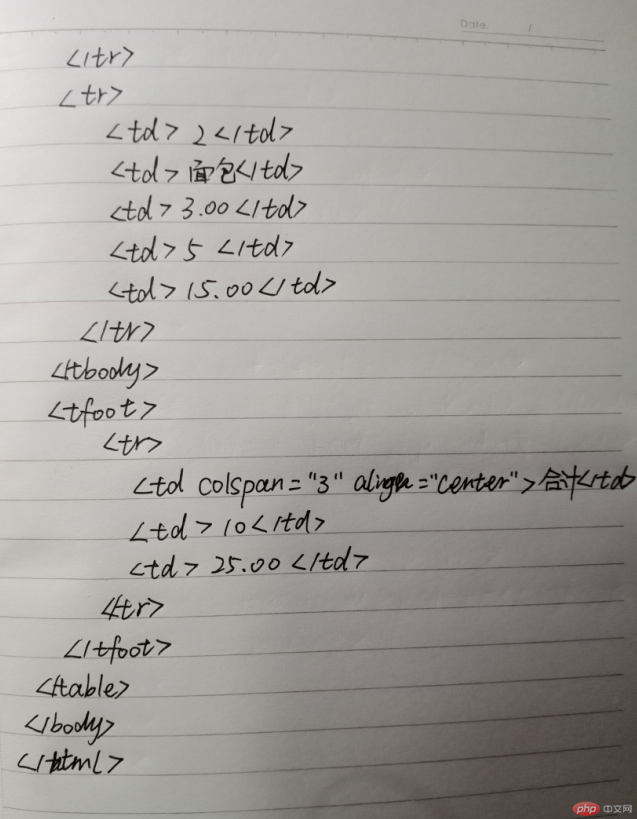 Date. /
</tr>
<tr>
<td> 2 </td>
<td> 面包</td>
<td> 3.00 </td>
<td> 5 </td>
<td> 15.00 </td>
</tr>
</tbody>
<tfoot>
<tr>
<td colspan = "3" alingn = "center"> 合计</td>
<td> 10 </td>
<td> 25.00 </td>
</tr>
</tfoot>
</table>
</body>
</html>
php 中文网